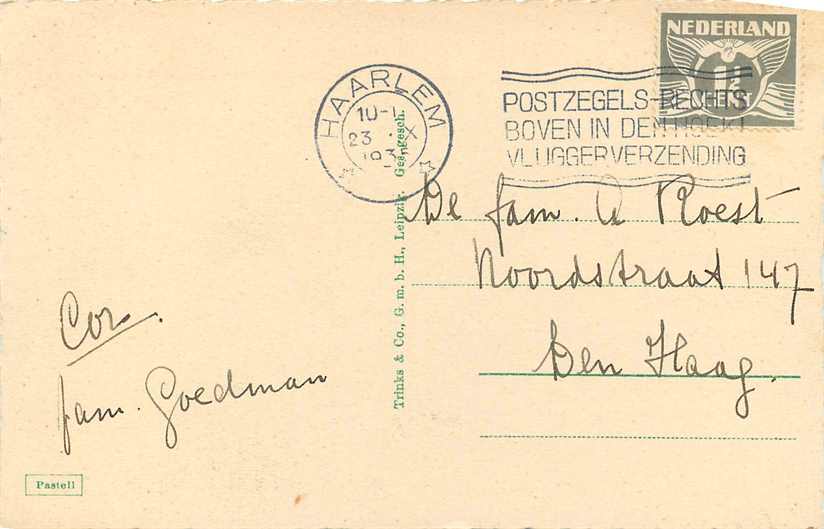 NEDERLAND
CENT
HAARLEM
23 X
193
POSTZEGELS-RECHTS
BOVEN IN DEN HOEK!
VLUGGER VERZENDING
De fam. A Roest
Noordstraat 147
Den Haag.
Cor.
fam. Goedman
Trinks & Co., G. m. b. H., Leipzig. Ges. gesch.
Pastell